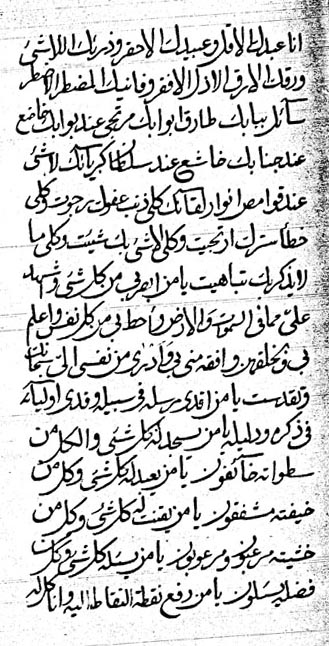 انا عبدك الاقل وعبيدك الاحقر وذرتك اللاشئ
ورقك الارق الاذل الافقر وفانيك المضطر
سائل ببابك طارق ابوابك مرتجى عند بوابك خاضع
عند جنابك خاشع عند سلطان كبريائك لاشئ
عند انوار لقائك كلى ذنب عفوك رجوت وكلى
خطأ سترك ارتجيت وكلى لاشئ بك شيئت وكلى ما
لا يذكر بك تباهيت يا من ابصر بى من كل شئ وشهد
على مما فى السموات والارض واحط بى من كل نفس واعلم
بى من وافقه منى بى وادرى من نفسى الى
وتقدست يا من افدى رسله فى سبيله وفدى اوليائه
فى ذكره ودليله يا من يسجد له كل شئ والكل من
سطواته خائفون يا من يعبد له كل شئ وكل من
خيفته مشفقون يا من يقنت له كل شئ وكل من
خشيته مرعوبون يا من يسئله كل شئ وكل من
فضله يسئلون يا من رفع نقطة اليه وانا كل له